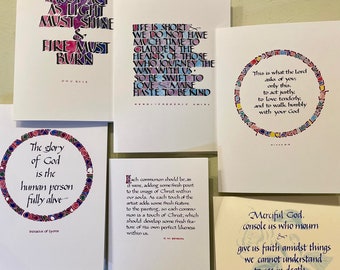 AS LIGHT
MUST SHINE
&
FIRE MUST
BURN
LIFE IS SHORT &
WE DO NOT HAVE
MUCH TIME TO
GLADDEN THE
HEARTS OF THOSE
WHO JOURNEY THE
WAY WITH US ·
SO BE SWIFT
TO LOVE &
MAKE
HASTE TO BE KIND
HENRI-FREDERIC AMIEL
This is what the Lord
asks of you:
only this,
to act justly,
to love tenderly,
and to walk humbly
with your God
The glory
of God
is the
human person
fully alive
Each communion should be, as
it were, adding some fresh point
to the image of Christ within
our souls. As each touch of the
artist adds some fresh feature
to the painting, so each com-
munion is a touch of Christ, which
should develop some fresh feature
of his own perfect likeness
within us.
Merciful God,
console us who mourn
&
give us faith amidst things
we cannot understand